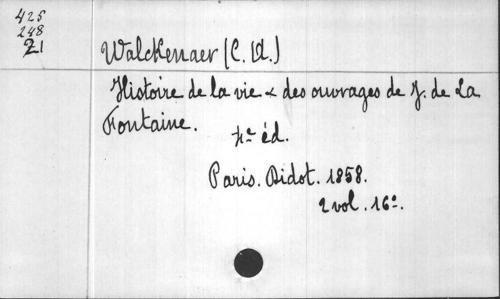 425
248
21
Walckenaer (C. A.)
Histoire de la vie & des ouvrages de J. de La
Fontaine.
4e éd.
Paris. Didot. 1858.
2 vol. 16°.